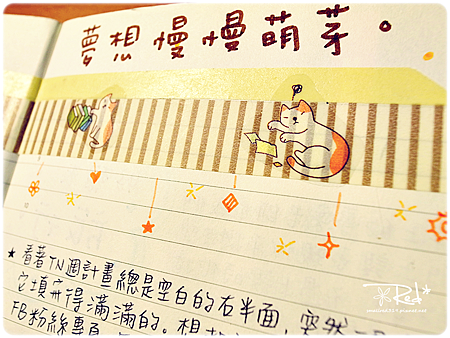 夢想慢慢萌芽。
★看著TN週計畫總是空白的右半面，突然
它填充得滿滿的。想
FB粉絲專頁
Red